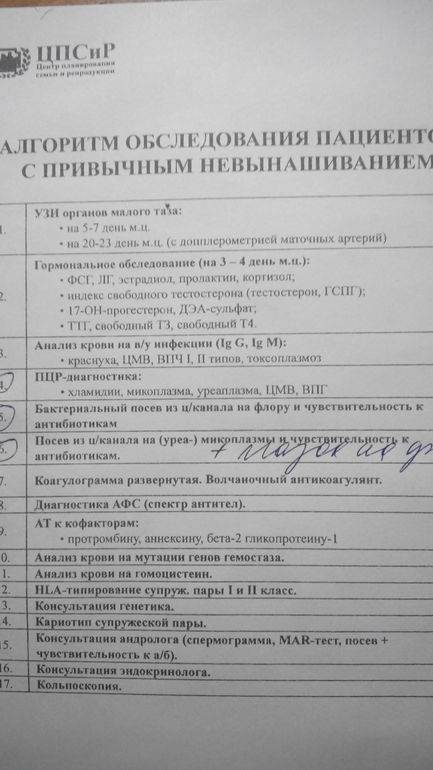 ЦПСиР
Центр планирования
семьи и репродукции
АЛГОРИТМ ОБСЛЕДОВАНИЯ ПАЦИЕНТО
С ПРИВЫЧНЫМ НЕВЫНАШИВАНИЕМ
1. УЗИ органов малого таза:
• на 5-7 день м.ц.
• на 20-23 день м.ц. (с допплерометрией маточных артерий)
2. Гормональное обследование (на 3 – 4 день м.ц.):
• ФСГ, ЛГ, эстрадиол, пролактин, кортизол;
• индекс свободного тестостерона (тестостерон, ГСПГ);
• 17-ОН-прогестерон, ДЭА-сульфат;
• ТТГ, свободный Т3, свободный Т4.
3. Анализ крови на в/у инфекции (Ig G, Ig M):
• краснуха, ЦМВ, ВПЧ I, II типов, токсоплазмоз
4. ПЦР-диагностика:
• хламидии, микоплазма, уреаплазма, ЦМВ, ВПГ
5. Бактериальный посев из ц/канала на флору и чувствительность к
антибиотикам
6. Посев из ц/канала на (уреа-) микоплазмы и чувствительность к
антибиотикам. + мазок на
7. Коагулограмма развернутая. Волчаночный антикоагулянт.
8. Диагностика АФС (спектр антител).
9. АТ к кофакторам:
• протромбину, аннексину, бета-2 гликопротеину-1
0. Анализ крови на мутации генов гемостаза.
1. Анализ крови на гомоцистеин.
2. HLA-типирование супруж. пары I и II класс.
3. Консультация генетика.
4. Кариотип супружеской пары.
15. Консультация андролога (спермограмма, MAR-тест, посев +
чувствительность к а/б).
16. Консультация эндокринолога.
17. Кольпоскопия.